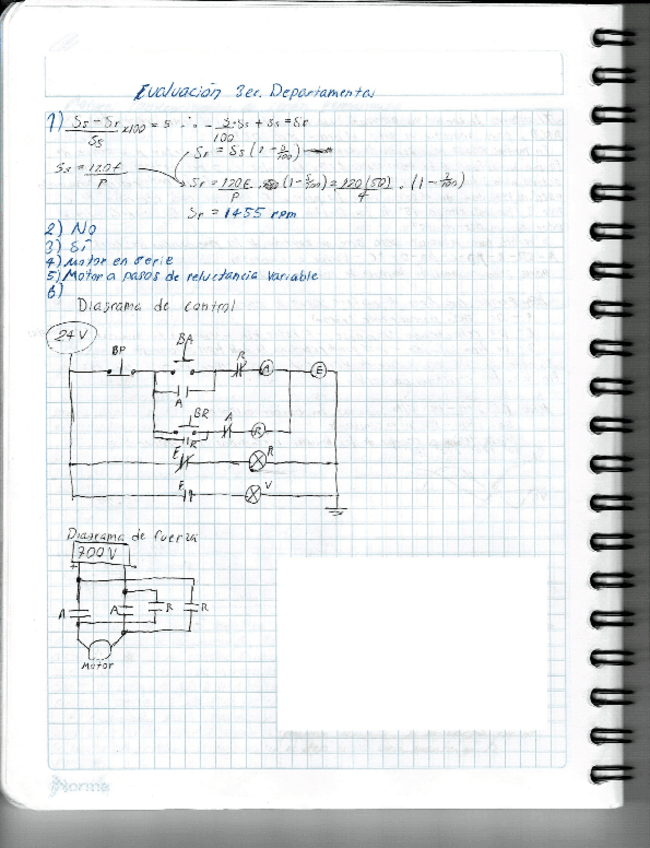 Evaluación 3er. Departamental
1) Ss - Sr / Ss x100 = s ∴ - s·Ss / 100 + Ss = Sr
Sr = Ss (1 - s/100)
Ss = 120f / P
Sr = 120f / P · (1 - s/100) = 120(50) / 4 · (1 - 3/100)
Sr = 1455 rpm
2) No
3) Sí
4) Motor en serie
5) Motor a pasos de reluctancia variable
6)
Diagrama de control
24 V
BP
BA
R
A
E
A
BR
A
R
R
E
R
E
V
Diagrama de fuerza
700V
+ -
A
A
R
R
Motor
Norma